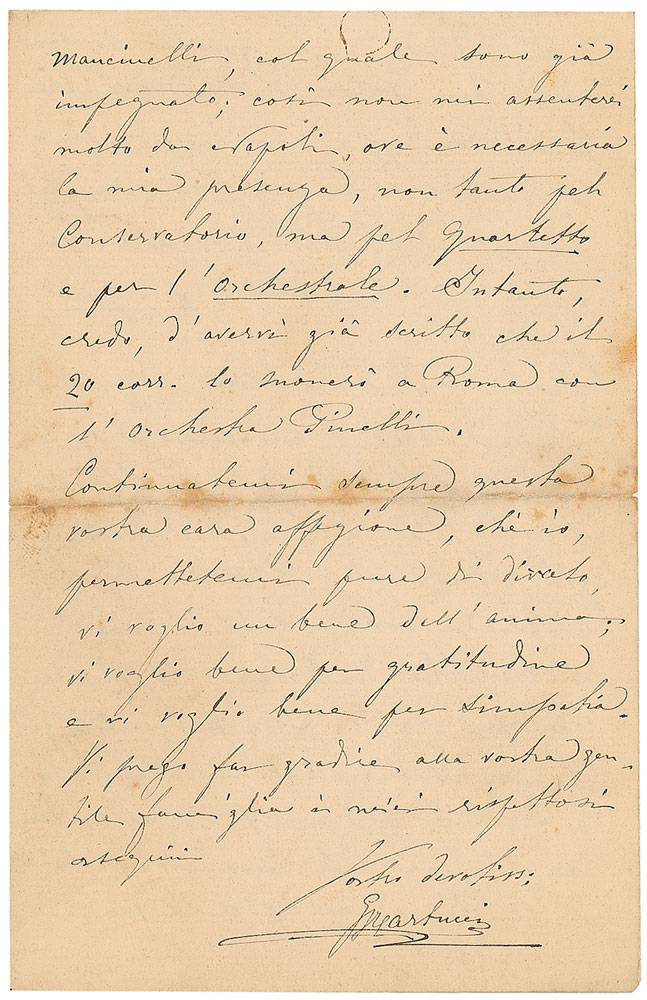 Mancinelli, col quale sono già
impegnato; così non mi assenterei
molto da Napoli, ove è necessaria
la mia presenza, non tanto pel
Conservatorio, ma pel Quartetto
e per l'Orchestrale. Intanto,
credo, d'avervi già scritto che il
20 corr. lo suonerò a Roma con
l'Orchestra Pinelli.
Continuatemi sempre questa
vostra cara affezione, chè io,
permettetemi pure di dirvelo,
vi voglio un bene dell'anima;
vi voglio bene per gratitudine
e vi voglio bene per simpatia.
Vi prego far gradire alla vostra gen-
tile famiglia i miei rispettosi
ossequii
Vostro devotiss:
GMartucci